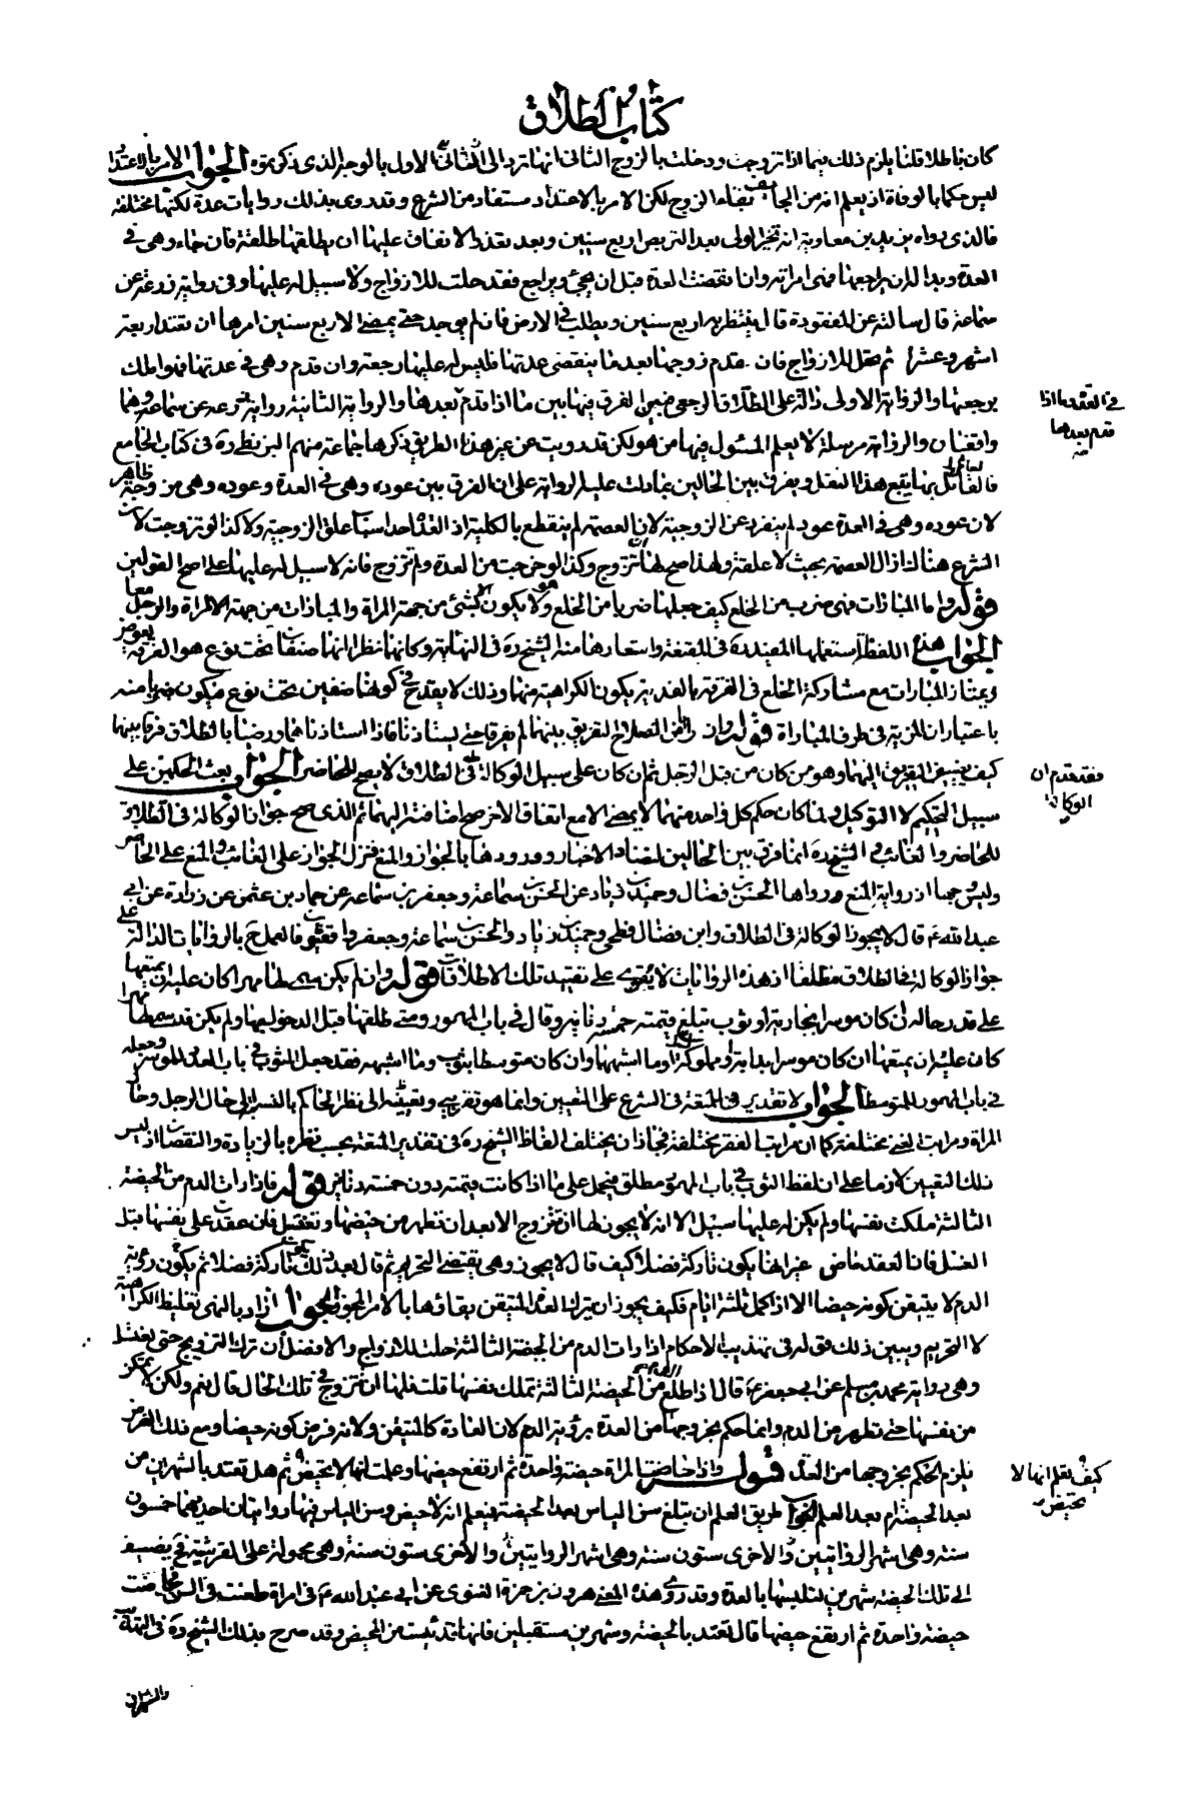 كتاب الطلاق
كان باطلا قلنا يلزم ذلك فيما اذا تزوجت ودخلت بالزوج الثانى انها ترد الى الاول بالوجه الذى ذكرتموه الجواب الامر بالاعتداد
ليس حكما بالوفاة اذ يعلم انه من الجايز بقاء الزوج لكن الامر بالاعتداد مستفاد من الشرع وقد روى بذلك روايات عدة لكنها مختلفة
فالذى رواه بريد بن معاوية انه تخير الولى بعد التربص اربع سنين وبعد تعذر الانفاق عليها ان يطلقها طلقة فان جاء وهى فى
العدة وبدا له ان يراجعها فهى امراته وان انقضت العدة قبل ان يجئ ويراجع فقد حلت للازواج ولا سبيل له عليها وفى رواية زرعة عن
سماعة قال سالته عن المفقودة قال ينتظر به اربع سنين ويطلب فى الارض فان لم يوجد حتى يمضى الاربع سنين امرها ان تعتد اربعة
اشهر وعشرا ثم تحل للازواج فان قدم زوجها بعد ما ينقضى عدتها فليس له عليها رجعة وان قدم وهى فى عدتها فهو املك
برجعتها والرواية الاولى دالة على الطلاق الرجعى فيمن الفرق فيها بين ما اذا قدم بعدها والرواية الثانية رواية زرعة عن سماعة وهما
فى العقد ما اذا
قدم بعدها
واقفيان والرواية مرسلة لا يعلم المسئول فيها من هو لكن قد رويت عن غير هذا الطريق ذكرها جماعة منهم البزنطى ره فى كتاب الجامع
فالقائل بها يتبع هذا النقل ويفرق بين الحالين عملا بما دلت عليه الرواية على ان الفرق بين عوده وهى فى العدة وعوده وهى من وجه ظاهر
لان عوده وهى فى العدة عود لم ينفرد عن الزوجية لان العصمة لم ينقطع بالكلية اذ العدة احد اسباب علق الزوجية ولا كذا لو تزوجت لان
الشرع هناك ازال العصمة بحيث لا علقة ولهذا صح لها ان تتزوج وكذا لو خرجت من العدة ولم تتزوج فانه لا سبيل له عليها على اصح القولين
قوله واما المبارات فهى ضرب من الخلع كيف جعلها ضربا من الخلع وهو لا يكون الا لشئ من جهة المراة والمبارات من جهة المراة والرجل معا
الجواب هذه اللفظة استعملها المفيد ره فى المقنعة واستعارها منه الشيخ ره فى النهاية وكانهما نظرا انهما صنفان تحت نوع هو الفرقة بعوض
ويمتاز المبارات مع مشاركة الخلع فى الفرقة بالفدية بكون الكراهية منهما وذلك لا يقدح فى كونهما صنفين تحت نوع فيكون ضربا منه
باعتبار ان المزية فى طرف المباراة قوله وان راى من الصلاح التفريق بينهما لم يفرقا حتى يستاذنا فاذا استاذناهما ورضيا بالطلاق فرقا بينهما
كيف يضيف التفريق اليهما وهو من كان من قبل الرجل ثم ان كان على سبيل الوكالة فى الطلاق لا يصح للحاضر الجواب بعث الحكمين على
فقد قدم ان
الوكالة
سبيل التحكيم لا التوكيل ولما كان حكم كل واحد منهما لا يمضى الا مع اتفاق الاخر صح اضافته اليهما ثم الذى صح جواز الوكالة فى الطلاق
للحاضر والغائب والشيخ ره انما فرق بين الحالين لتضاد الاخبار وورودها بالجواز والمنع فنزل الجواز على الغائب والمنع على الحاضر
وليس جيدا اذ رواية المنع رواها الحسن بن فضال وحميد بن زياد عن الحسن بن سماعة وجعفر بن سماعة عن حماد بن عثمن عن زرارة عن ابى
عبد الله ع قال لا يجوز الوكالة فى الطلاق وابن فضال فطحى وحميد بن زياد والحسن بن سماعة وجعفر واقفيون فالعمل بالروايات الدالة على
جواز الوكالة فى الطلاق مطلقا اذ هذه الروايات لا يقوى على تقييد تلك الاطلاقات قوله وان لم يكن سمى لها مهرا كان عليه ان يمتعها
على قدر حاله ان كان موسرا بجارية او ثوب تبلغ قيمته خمسة دنانير وقال فى باب المهور ومتى طلقها قبل الدخول بها ولم يكن قد سمى لها مهرا
كان عليه ان يمتعها ان كان موسرا بدابة او مملوك او ما اشبهها وان كان متوسطا بثوب وما اشبهه فقد جعل الثوب فى باب العدد للموسر وجعله
فى باب المهور للمتوسط الجواب لا تقدير فى المتعة فى الشرع على التعيين وانما هو تقريب وتعيينه الى نظر الحاكم بالنسبة الى حال الرجل وحال
المراة ومراتب الغنى مختلفة كما ان مراتب الفقر مختلفة فجاز ان يختلف الفاظ الشيخ ره فى تقدير المتعة بحسب نظره بالزيادة والنقصان اذ ليس
ذلك التعيين لازما على ان لفظ الثوب فى باب المهور مطلق فيحمل على ما اذا كانت قيمته دون خمسة دنانير قوله فاذا رات الدم من الحيضة
الثالثة ملكت نفسها ولم يكن له عليها سبيل الا انه لا يجوز لها ان تتزوج الا بعد ان تطهر من حيضها وتغتسل فان عقدت على نفسها قبل
الغسل فان العقد ماض غير انها يكون تاركة فضلا كيف قال لا يجوز وهى يقتضى التحريم ثم قال بعد ذلك يكون تاركة فضلا ثم يكون رؤية
الدم لا يتيقن كونه حيضا الا اذا كمل ثلثة ايام فكيف يجوز ان يترك العدة المتيقن بقاؤها بالامر المجوز الجواب اراد بالنهى تغليظ الكراهية
لا التحريم ويبين ذلك قوله فى تهذيب الاحكام اذا رات الدم من الحيضة الثالثة حلت للازواج والافضل ان تترك التزويج حتى يغتسل
وهى رواية محمد بن مسلم عن ابى جعفر ع قال اذا طلع الدم من الحيضة الثالثة تملك نفسها قلت فلها ان تتزوج فى تلك الحال قال نعم ولكن لا يمكن
من نفسها حتى تطهر من الدم وانما حكم بخروجها من العدة برؤية الدم لان العادة كالمتيقن ولانه فرض كونه حيضا ومع ذلك الفرض
يلزم الحكم بخروجها من العدة قوله واذا حاضت المراة حيضة واحدة ثم ارتفع حيضها وعلمت انها لا يحيض ثم هل تعتد بالشهرين من
كيف يعلم انها لا
تحيض
بعد الحيضة ام بعد العلم الجواب طريق العلم ان تبلغ سن الياس بعد الحيضة فيعلم انه لا حيض وسن الياس فيها روايتان احديهما خمسون
سنة وهى اشهر الروايتين والاخرى ستون سنة وهى اشهر الروايتين والاخرى ستون سنة وهى محمولة على القرشية فح يضيف
الى تلك الحيضة شهرين لتلبسها بالعدة وقد روى هذه المعنى هرون بن حمزة الغنوى عن ابى عبد الله ع فى امراة طعنت فى السن فحاضت
حيضة واحدة ثم ارتفع حيضها قال تعتد بالحيضة وشهرين مستقبلين فانها قد يئست من المحيض وقد صرح بذلك الشيخ ره فى